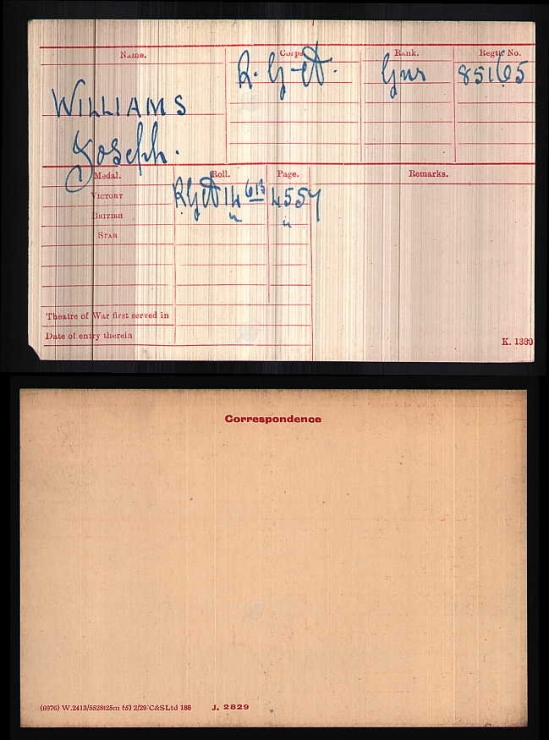 Name. Corps. Rank. Regtl. No.
WILLIAMS R.G.A. Gnr 85165
Joseph.
Medal. Roll. Page. Remarks.
VICTORY RGA 14 4557
BRITISH " "
STAR
Theatre of War first served in
Date of entry therein
K. 1380
Correspondence
(6976) W.2413/ 2/29 C&SLtd J. 2829